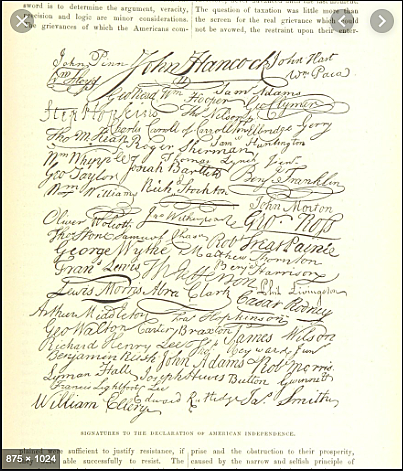 sword is to determine the argument, veracity,
precision and logic are minor considerations.
The grievances of which the Americans com-
The question of taxation was little more than
the screen for the real grievance which could
not be avowed, the restraint upon their enter-
John Penn John Hancock John Hart
Wm Floyd Wm Paca
Geo Read Wm Hooper Sam Adams Geo Clymer
Step Hopkins Tho Nelson jr
Charles Carroll of Carrollton Elbridge Gerry
Tho M:Kean Roger Sherman Sam Huntington
Wm Whipple Thomas Lynch Junr
Geo Taylor Josiah Bartlett Benj Franklin
Wm Williams Richd Stockton
John Morton
Oliver Wolcott Jno Witherspoon Geo Ross
Thos Stone Samuel Chase Rob Treat Paine
George Wythe Matthew Thornton
Fran Lewis Benj Harrison
Lewis Morris Abra Clark Phil Livingston
Caesar Rodney
Arthur Middleton Fras Hopkinson
Geo Walton Carter Braxton James Wilson
Richard Henry Lee Thos Heyward Junr
Benjamin Rush John Adams Robt Morris
Lyman Hall Joseph Hewes Button Gwinnett
Francis Lightfoot Lee
William Ellery Edward Rutledge Jas Smith
SIGNATURES TO THE DECLARATION OF AMERICAN INDEPENDENCE.
plained were sufficient to justify resistance, if
able successfully to resist. The
prise and the obstruction to their prosperity,
caused by the narrow and selfish principle of
875 × 1024